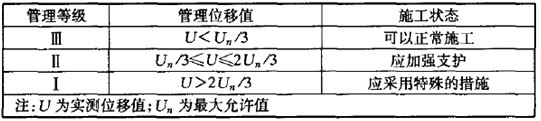 管理等级 管理位移值 施工状态
Ⅲ U<Uₙ/3 可以正常施工
Ⅱ Uₙ/3≤U≤2Uₙ/3 应加强支护
Ⅰ U>2Uₙ/3 应采用特殊的措施
注:U为实测位移值;Uₙ为最大允许值